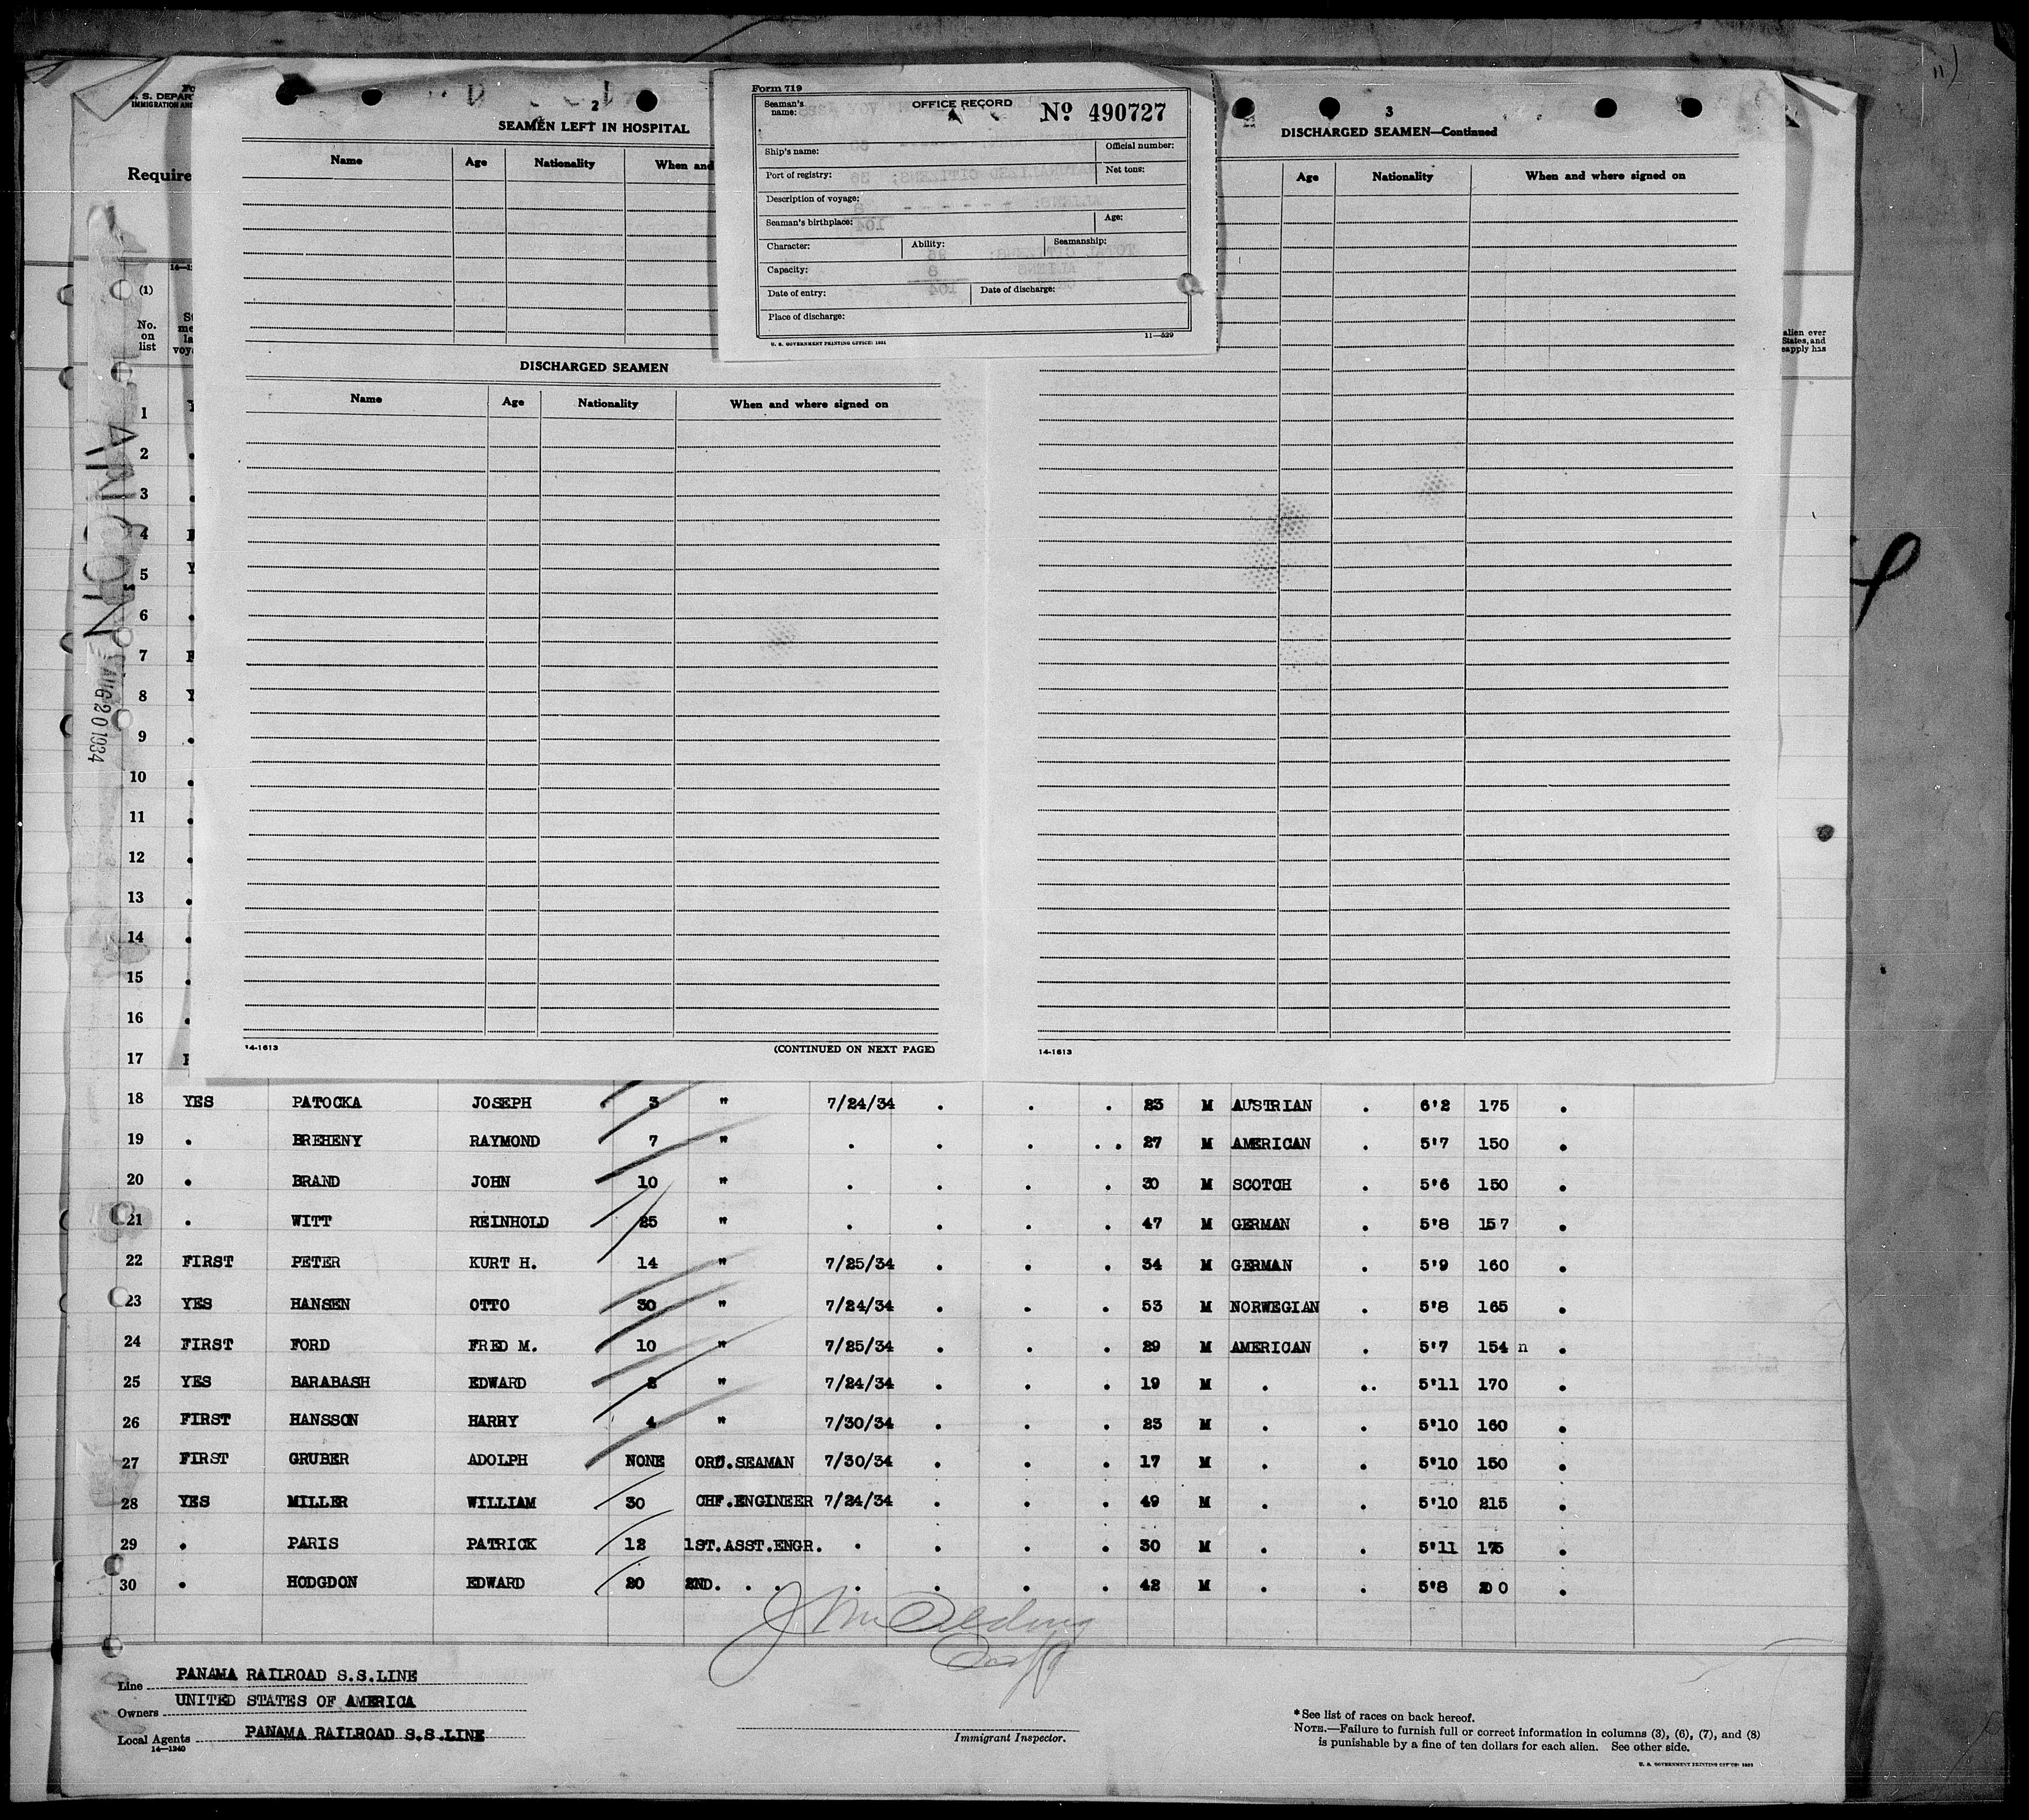 S. DEPAR
IMMIGRATION AND
Require
(1)
No.
on
list
ANCON
AUG 20 1934
2
SEAMEN LEFT IN HOSPITAL
Name Age Nationality When and
DISCHARGED SEAMEN
Name Age Nationality When and where signed on
14-1613
(CONTINUED ON NEXT PAGE)
Form 719
Seaman's name:
OFFICE RECORD
No. 490727
Ship's name: Official number:
Port of registry: Net tons:
Description of voyage:
Seaman's birthplace: Age:
Character: Ability: Seamanship:
Capacity:
Date of entry: Date of discharge:
Place of discharge:
U. S. GOVERNMENT PRINTING OFFICE: 1931
11—529
3
DISCHARGED SEAMEN—Continued
Age Nationality When and where signed on
14-1613
alien over
States, and
eapply has
1
2
3
4
5
6
7
8
9
10
11
12
13
14
15
16
17
18 YES PATOCKA JOSEPH 3 " 7/24/34 . . . 23 M AUSTRIAN . 6'2 175 .
19 . BREHENY RAYMOND 7 " . . . . . 27 M AMERICAN . 5'7 150 .
20 . BRAND JOHN 10 " . . . . 30 M SCOTCH . 5'6 150 .
21 . WITT REINHOLD 25 " . . . . 47 M GERMAN . 5'8 157 .
22 FIRST PETER KURT H. 14 " 7/25/34 . . . 34 M GERMAN . 5'9 160 .
23 YES HANSEN OTTO 30 " 7/24/34 . . . 53 M NORWEGIAN . 5'8 165 .
24 FIRST FORD FRED M. 10 " 7/25/34 . . . 29 M AMERICAN . 5'7 154 n .
25 YES BARABASH EDWARD 2 " 7/24/34 . . . 19 M . .. 5'11 170 .
26 FIRST HANSSON HARRY 4 " 7/30/34 . . . 23 M . . 5'10 160 .
27 FIRST GRUBER ADOLPH NONE ORD.SEAMAN 7/30/34 . . . 17 M . . 5'10 150 .
28 YES MILLER WILLIAM 30 CHF.ENGINEER 7/24/34 . . . 49 M . . 5'10 215 .
29 . PARIS PATRICK 12 1ST.ASST.ENGR. . . . . 30 M . . 5'11 175 .
30 . HODGDON EDWARD 20 2ND. . . . . . . 42 M . . 5'8 200 .
Line PANAMA RAILROAD S.S.LINE
Owners UNITED STATES OF AMERICA
Local Agents PANAMA RAILROAD S.S.LINE
14—1240
Immigrant Inspector.
*See list of races on back hereof.
NOTE.—Failure to furnish full or correct information in columns (3), (6), (7), and (8)
is punishable by a fine of ten dollars for each alien. See other side.